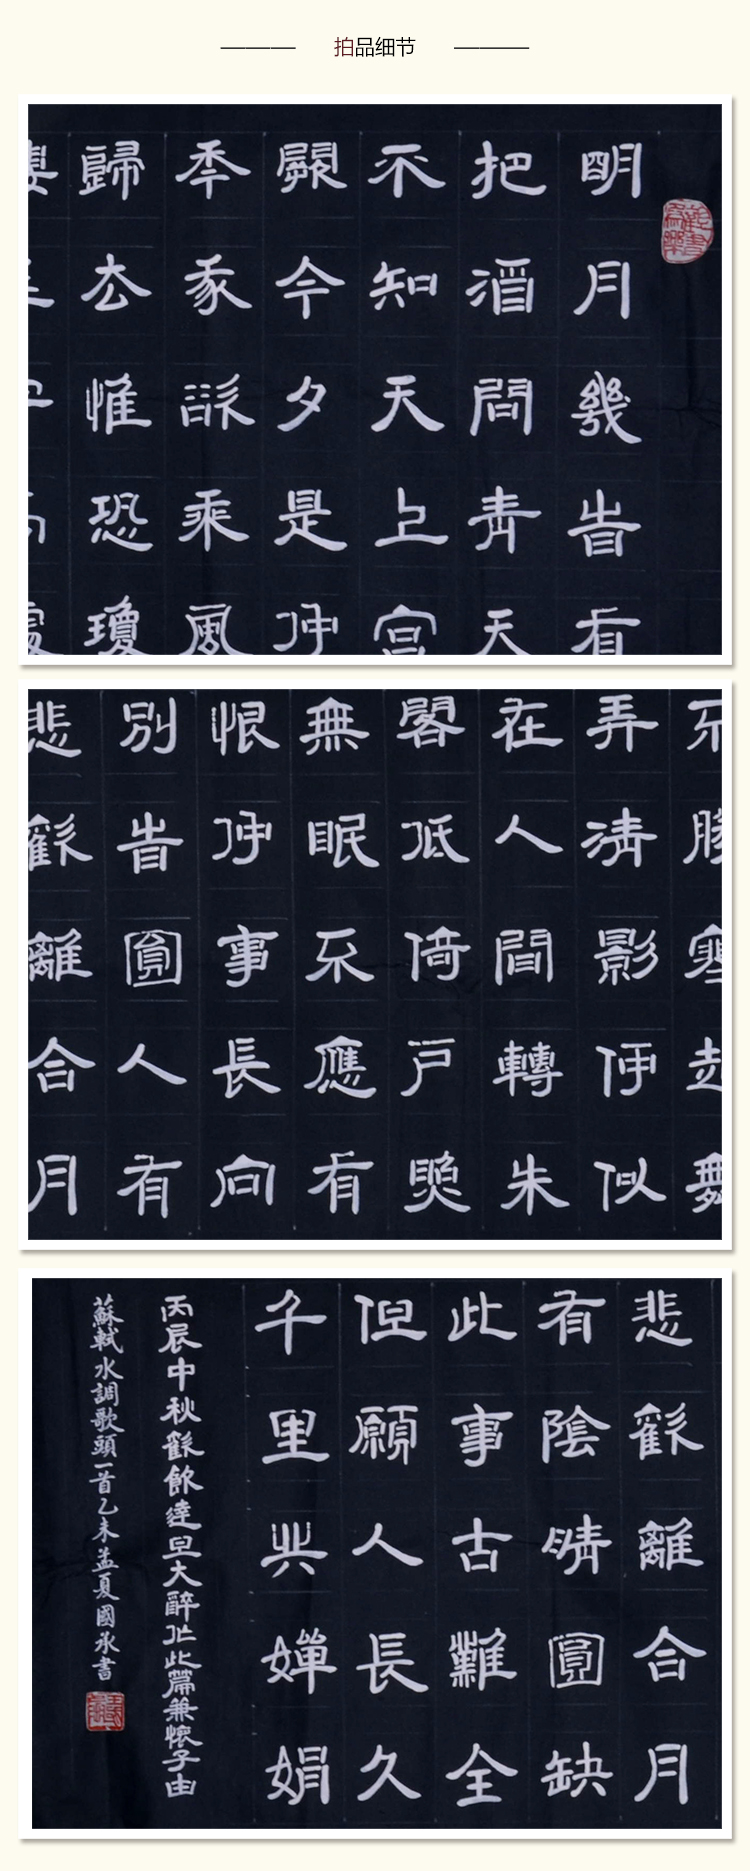 拍品细节
明月幾旹有
把酒問青天
不知天上宮
闕今夕是何
年我欲乘風
歸去惟恐瓊
不勝寒起舞
弄清影何似
在人間轉朱
閣低倚戶照
無眠不應有
恨何事長向
別旹圓人有
悲歡離合月
悲歡離合月
有陰晴圓缺
此事古難全
但願人長久
千里共嬋娟
丙辰中秋歡飲達旦大醉作此篇兼懷子由
蘇軾水調歌頭一首乙未孟夏國承書